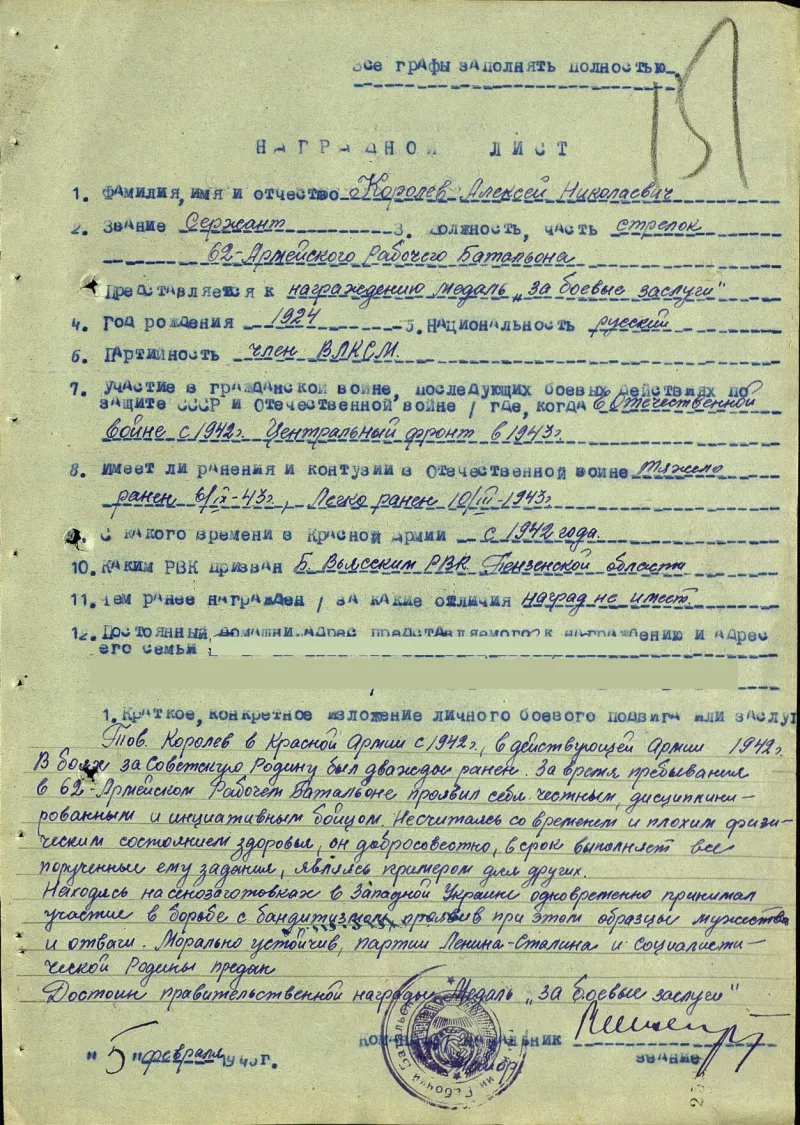 Все графы заполнять полностью.
151
НАГРАДНОЙ ЛИСТ
1. Фамилия, имя и отчество Королев Алексей Николаевич
2. Звание Сержант 3. Должность, часть стрелок
62-Армейского Рабочего Батальона
Представляется к награждению медаль „За боевые заслуги"
4. Год рождения 1924 5. Национальность русский
6. Партийность член ВЛКСМ.
7. Участие в гражданской войне, последующих боевых действиях по
защите СССР и Отечественной войне / где, когда В Отечественной
войне с 1942г. Центральный фронт в 1943г
8. Имеет ли ранения и контузии в Отечественной войне тяжело
ранен 6/IX-43г, Легко ранен 10/III-1943г
9. С какого времени в Красной Армии с 1942 года.
10. Каким РВК призван Б. Вьясским РВК Пензенской области
11. Чем ранее награжден / за какие отличия наград не имеет.
12. Постоянный домашни адрес представляемого к награждению и адрес
его семьи
1. Краткое, конкретное изложение личного боевого подвига или заслуг
Тов. Королев в Красной Армии с 1942г., в действующей Армии 1942г.
В боях за Советскую Родину был дважды ранен. За время пребывания
в 62-Армейском Рабочем Батальоне проявил себя честным, дисциплини-
рованным и инициативным бойцом. Несчитаясь со временем и плохим физи-
ческим состоянием здоровья, он добросовестно, в срок выполняет все
порученные ему задания, являясь примером для других.
Находясь на сенозаготовках в Западной Украине одновременно принимал
участие в борьбе с бандитизмом, проявив при этом образцы мужества
и отваги. Морально устойчив, партии Ленина-Сталина и социалисти-
ческой Родины предан
Достоин правительственной награды Медаль „За боевые заслуги"
звание
"5" февраля г.
Рабочий